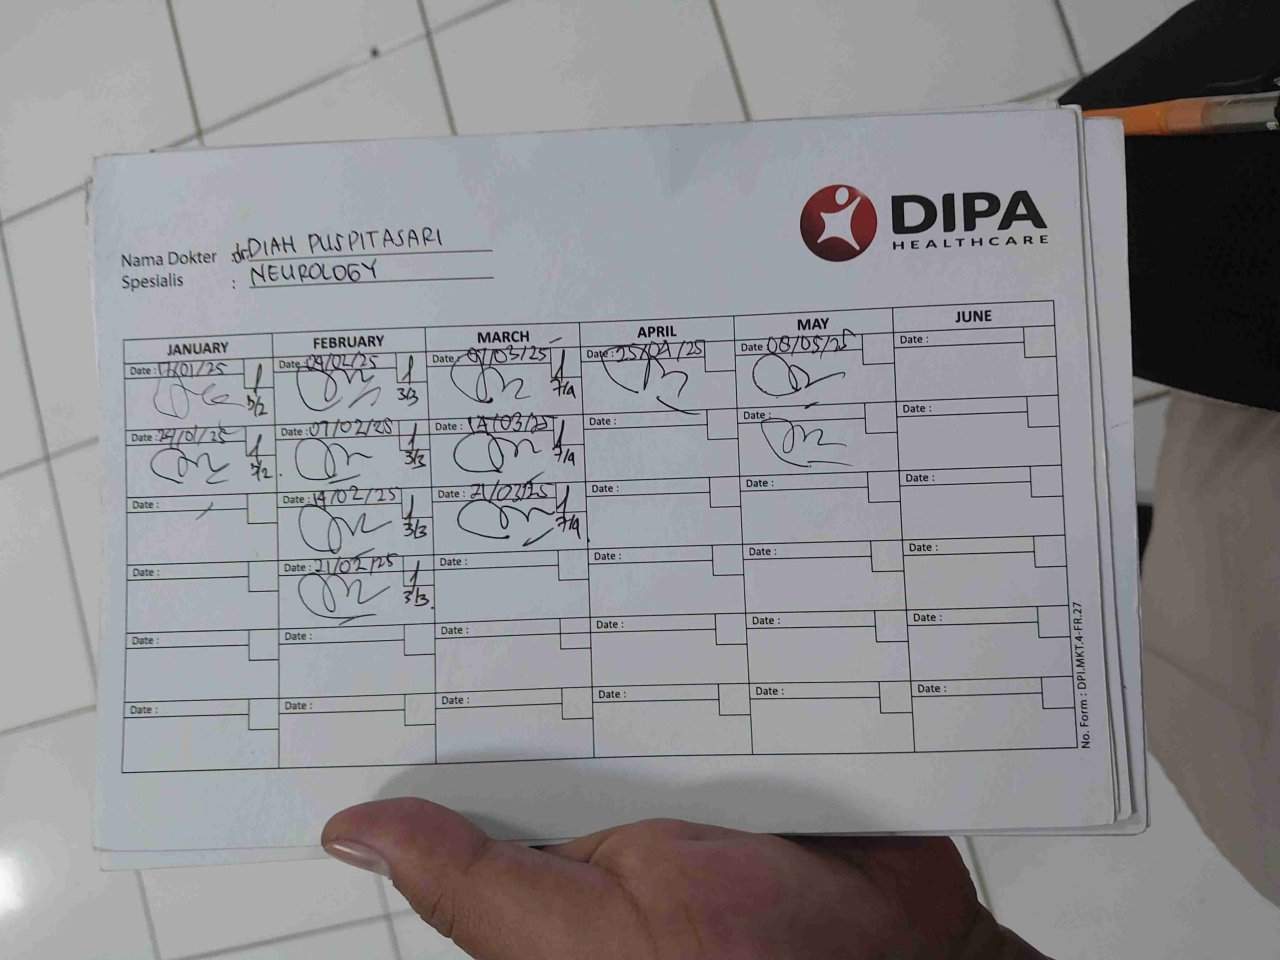 DIPA
HEALTHCARE
Nama Dokter : dr. DIAH PUSPITASARI
Spesialis : NEUROLOGY
JANUARY FEBRUARY MARCH APRIL MAY JUNE
Date : /01/25 Date : 04/02/25 Date : 07/03/25 Date : 25/04/25 Date 08/05/25 Date :
3/2 3/3 7/4
Date : 24/01/25 Date : 07/02/25 Date : 14/03/25 Date : Date : Date :
3/2 3/3 7/4
Date : Date : 14/02/25 Date : 21/03/25 Date : Date : Date :
3/3 7/4
Date : Date : 21/02/25 Date : Date : Date : Date :
3/3
Date : Date : Date : Date : Date : Date :
Date : Date : Date : Date : Date : Date :
No. Form : DPI.MKT.4-FR.27